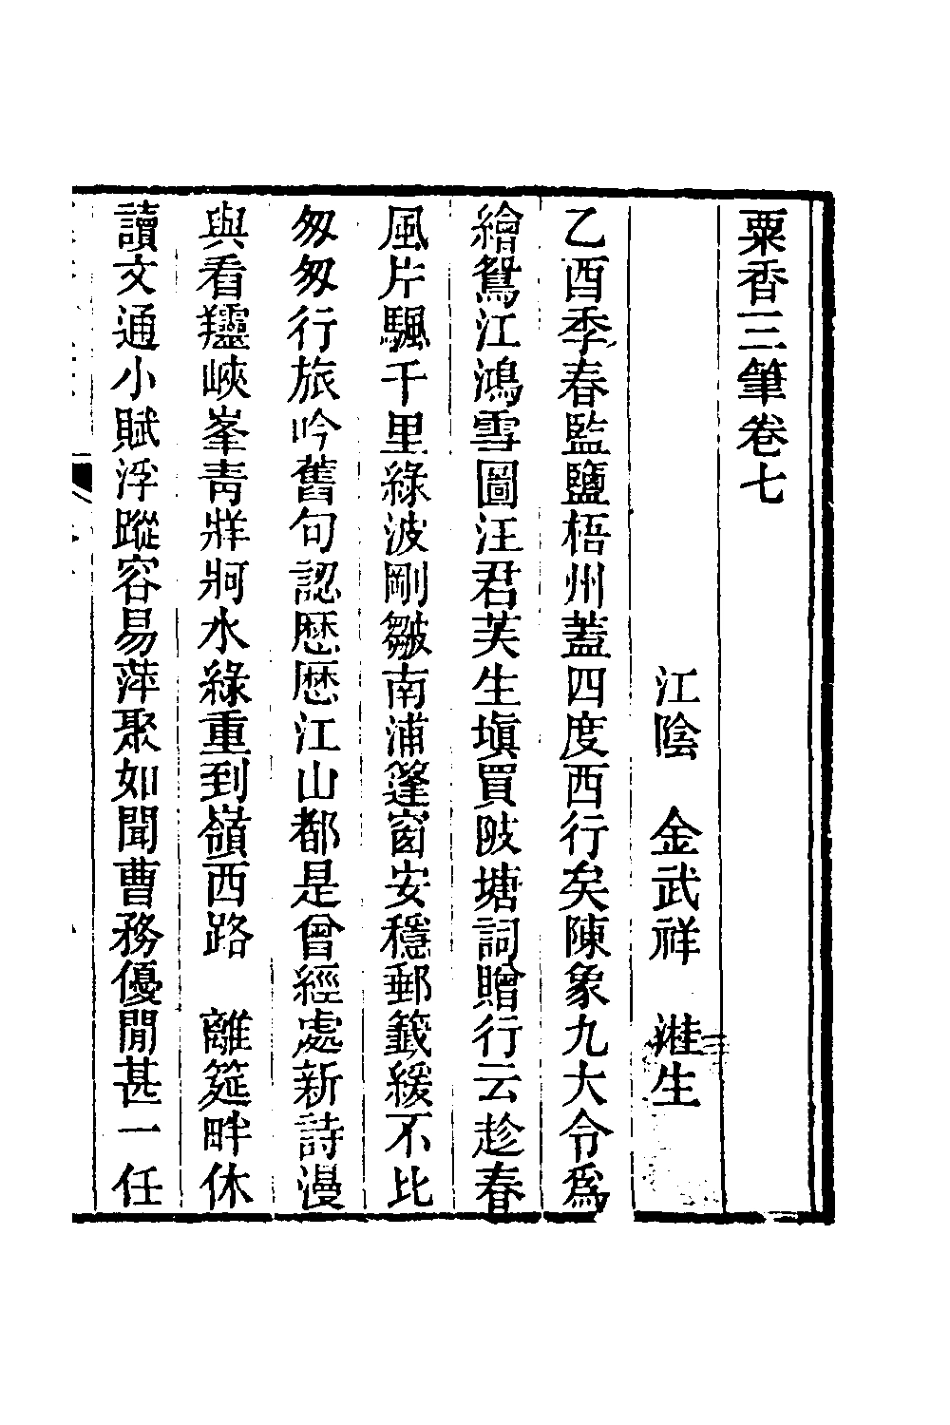 粟香三筆卷七
江陰　金武祥　溎生
乙酉季春監鹽梧州蓋四度西行矣陳象九大令爲
繪鴛江鴻雪圖汪君芙生塡買陂塘詞贈行云趁春
風片颿千里綠波剛皺南浦篷窗安穩郵籤緩不比
匆匆行旅吟舊句認歷歷江山都是曾經處新詩漫
與看羚峽峯靑牂牁水綠重到嶺西路　離筵畔休
讀文通小賦浮蹤容易萍聚如聞曹務優閒甚一任